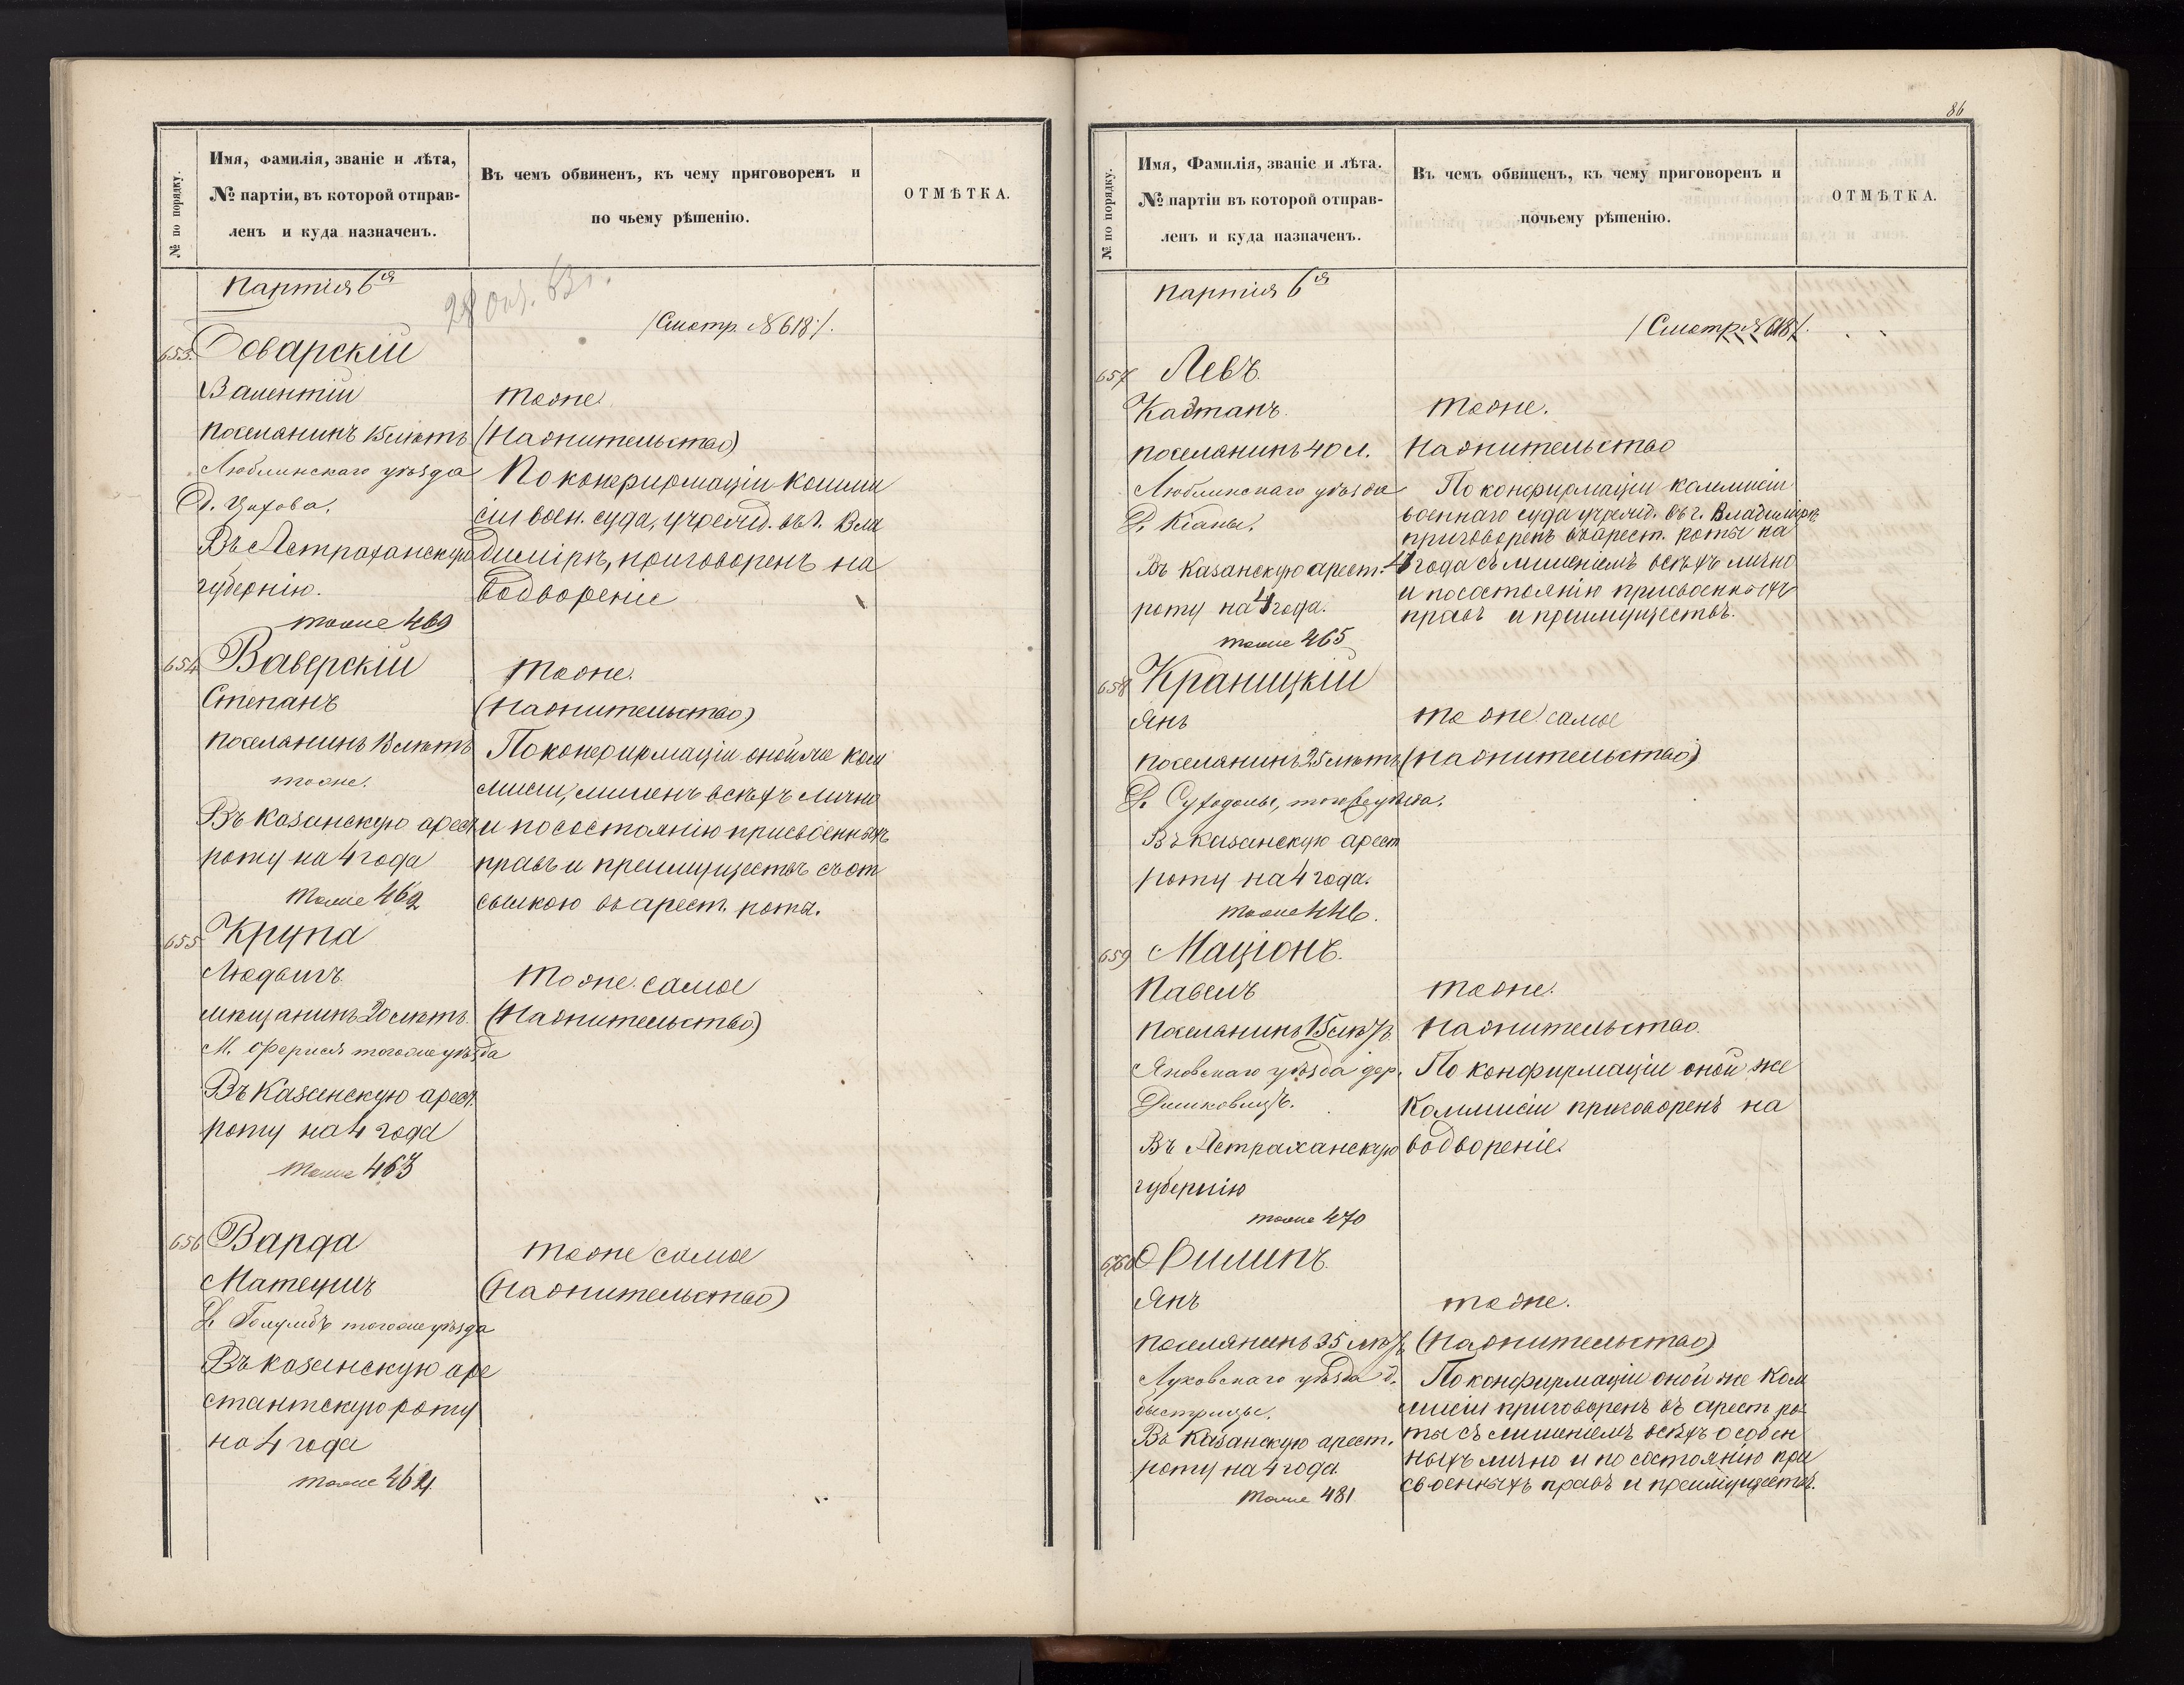 № по порядку.
Имя, фамилія, званіе и лѣта,
№ партіи, въ которой отправ-
ленъ и куда назначенъ.
Въ чемъ обвиненъ, къ чему приговоренъ и
по чьему рѣшенію.
ОТМѢТКА.
Партія 6я
/Смотр. № 618/.
653. Товарскій
Валентій
поселанинъ 15 лѣтъ
Люблинскаго уѣзда
Въ Астраханскую
губернію.
тоже 469
тоже
(Нажительство)
По конфирмаціи комми
сіи воен. суда, учрежд. въ г. Вла
димірѣ, приговоренъ на
водвореніе
654 Ваверскій
Степанъ
поселанинъ 18 лѣтъ
тоже.
Въ Казанскую арест
роту на 4 года
тоже 462
тоже.
(нажительство)
По конфирмаціи оной же ком
мисіи, лишенъ всѣхъ лично
и по состоянію присвоенныхъ
правъ и преимуществъ съ от
сылкою въ арест. роты.
655 Крупа
Людвигъ
мѣщанинъ 20 лѣтъ.
тогоже уѣзда
Въ Казанскую арест.
роту на 4 года
тоже 463
тоже самое
(Нажительство)
656 Варда
Матеушъ
тогоже уѣзда
Въ казанскую аре
стантскую роту
на 4 года
тоже 464
тоже самое
(нажительство)
86
№ по порядку.
Имя, Фамилія, званіе и лѣта.
№ партіи въ которой отправ-
ленъ и куда назначенъ.
Въ чемъ обвиненъ, къ чему приговоренъ и
почьему рѣшенію.
ОТМѢТКА.
Партія 6я
/Смотр. № 618/.
657 Левъ.
поселанинъ 40 л.
Люблинскаго уѣзда
Д. Кіаны.
Въ Казанскую арест.
роту на 4 года.
тоже 465
тоже.
Нажительство
По конфирмаціи коммисіи
военнаго суда учрежд. въ г. Владимірѣ
приговоренъ въ арест. роты на
4 года съ лишеніемъ всѣхъ лично
и посостоянію присвоенныхъ
правъ и преимуществъ.
658 Краницкій
Янъ
поселанинъ 25 лѣтъ
Д. Суходолы, тогоже уѣзда.
Въ Казанскую арест
роту на 4 года.
тоже 446.
тоже самое
(нажительство)
659 Маціонъ.
Павелъ
поселанинъ 15 лѣтъ
Яновскаго уѣзда дер.
Въ Астраханскую
губернію
тоже 470
тоже.
нажительство.
По конфирмаціи оной же
коммисіи приговоренъ на
водвореніе.
660 Филипъ.
Янъ
поселянинъ 35 лѣтъ
Луковскаго уѣзда д.
Быстрицы.
Въ Казанскую арест.
роту на 4 года.
тоже 481
тоже.
(нажительство)
По конфирмаціи оной же ком
мисіи приговоренъ въ арест. ро-
ты съ лишеніемъ всѣхъ особен
ныхъ лично и по состоянію при
своенныхъ правъ и преимуществъ.